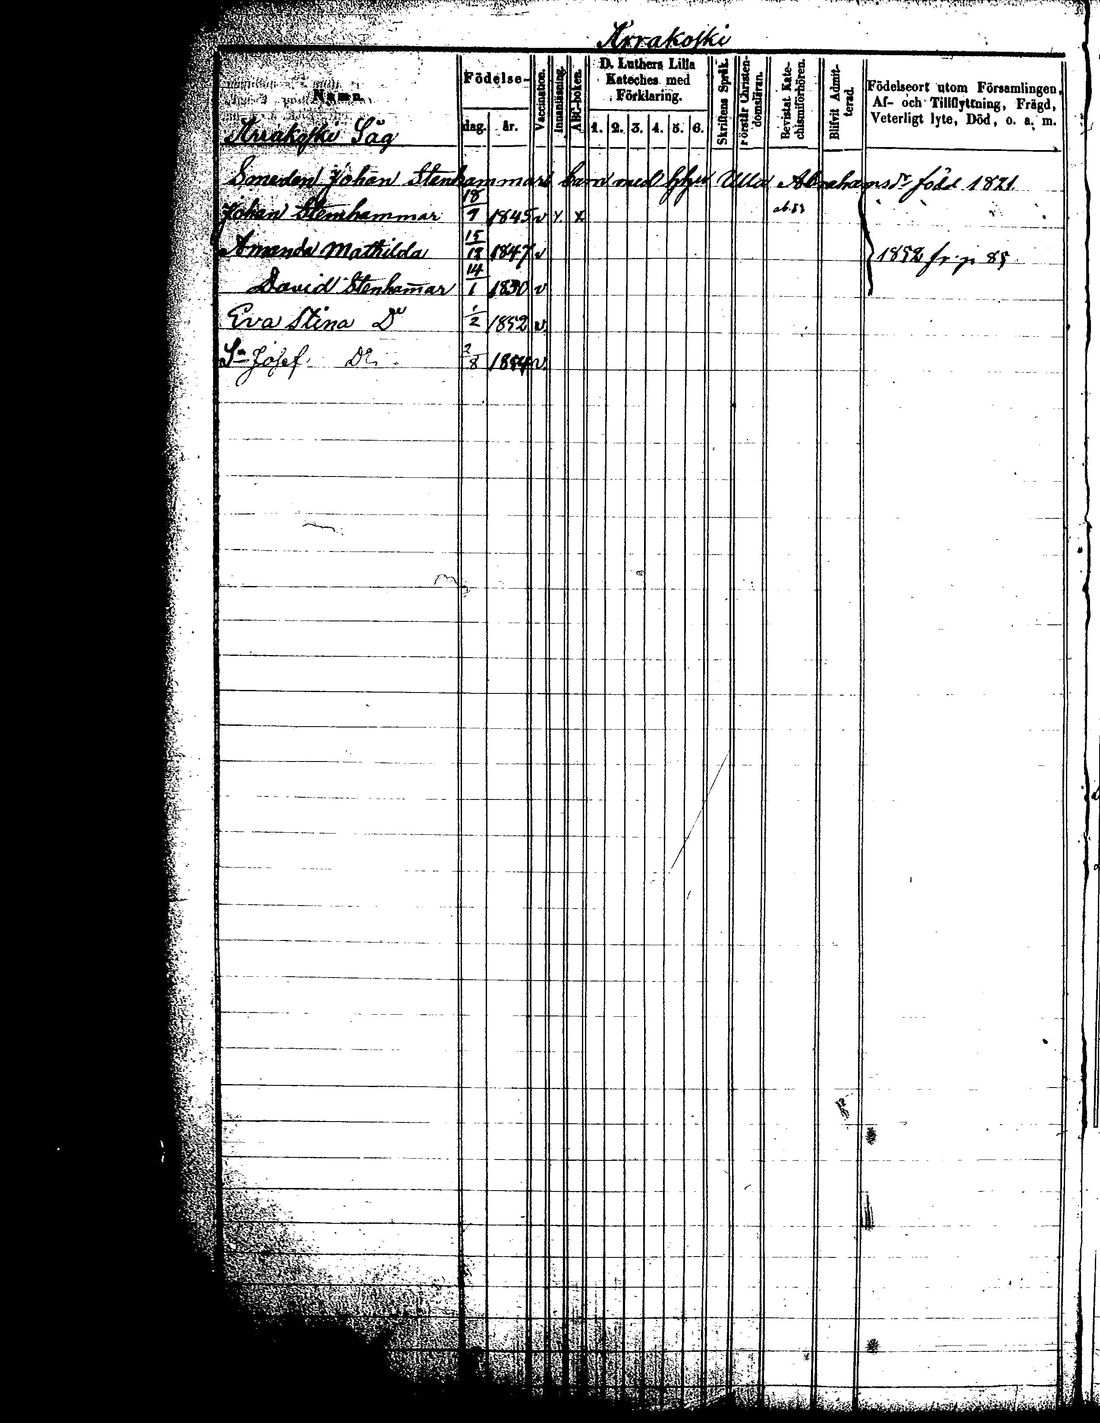 Arrakoski
Namn.
Födelse-
dag.
år.
Vaccination.
Innanläsning.
ABC-boken.
D. Luthers Lilla
Kateches med
Förklaring.
1. 2. 3. 4. 5. 6.
Skriftens Språk.
Förstår Christen-
domsläran.
Bevistat Kate-
chismiförhören.
Blifvit Admit-
terad.
Födelseort utom Församlingen,
Af- och Tillflyttning, Frägd,
Veterligt lyte, Död, o. a. m.
Arrakoski Såg
Smeden Johan Stenhammars barn med Hustru Ulla Abrahamsdr född 1821
Johan Stenhammar 18/9 1845 v x x
Amanda Mathilda 15/12 1847 v
David Stenhamar 14/1 1850 v
1852 fr. p 85
Eva Stina Dr 1/2 1852 v.
Sn Josef 2/8 1854 v.